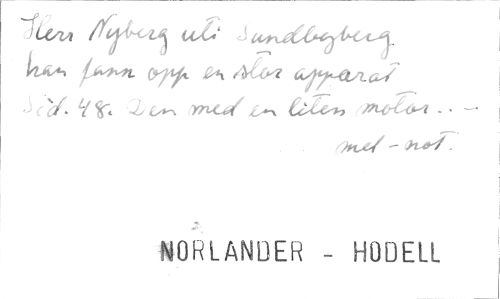 Herr Nyberg uti Sundbyberg
han fann opp en stor apparat
Sid. 48. Den med en liten motor..-
mel-not.
NORLANDER - HODELL